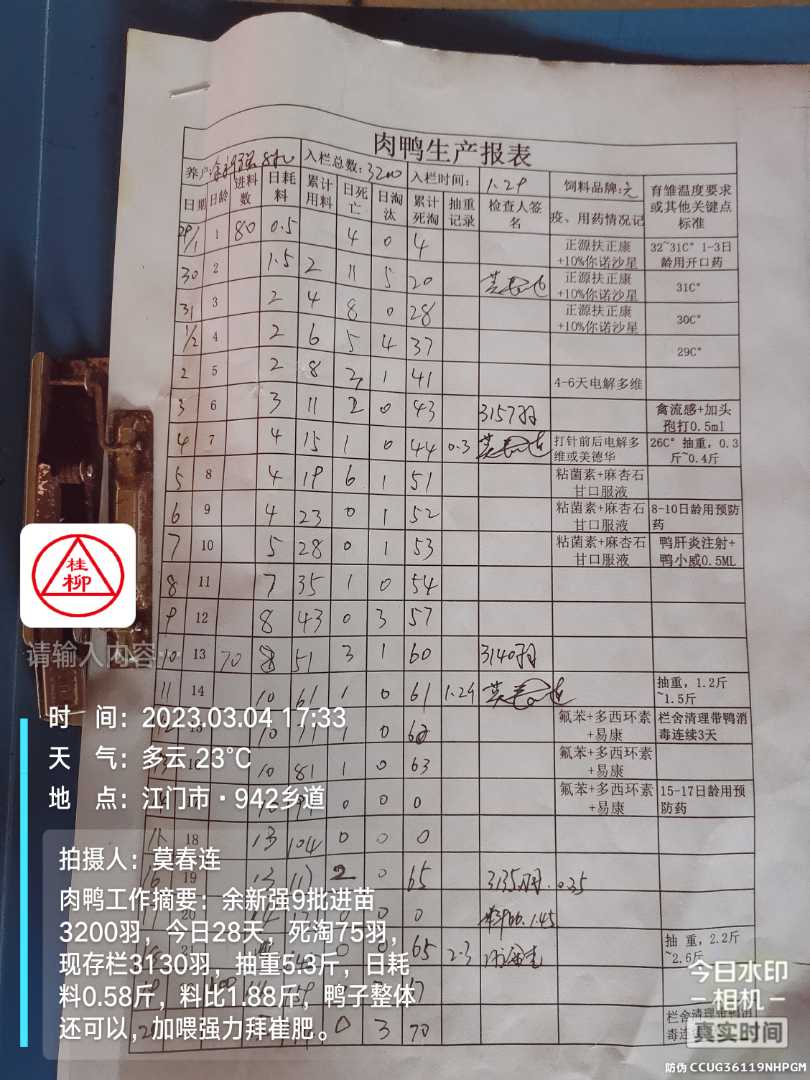 肉鸭生产报表
养户: 入栏总数:3200 入栏时间: 1.29 饲料品牌: 育雏温度要求或其他关键点标准
日期 日龄 进料数 日耗料 累计用料 日死亡 日淘汰 累计死淘 抽重记录 检查人签名 疫、用药情况记
29/1 1 80 0.5 4 0 4 正源扶正康+10%你诺沙星 32~31C° 1-3日龄用开口药
30 2 1.5 2 11 5 20 正源扶正康+10%你诺沙星 31C°
31 3 2 4 8 0 28 正源扶正康+10%你诺沙星 30C°
1/2 4 2 6 5 4 37 29C°
2 5 2 8 3 1 41 4-6天电解多维
3 6 3 11 2 0 43 3157羽 禽流感+加头孢打0.5ml
4 7 4 15 1 0 44 0.3 莫春连 打针前后电解多维或美德华 26C° 抽重,0.3斤~0.4斤
5 8 4 19 6 1 51 粘菌素+麻杏石甘口服液
6 9 4 23 0 1 52 粘菌素+麻杏石甘口服液 8-10日龄用预防药
7 10 5 28 0 1 53 粘菌素+麻杏石甘口服液 鸭肝炎注射+鸭小威0.5ML
8 11 7 35 1 0 54
9 12 8 43 0 3 57
10 13 70 8 51 3 1 60 3140羽
11 14 10 61 1 0 61 1.29 莫春连 抽重,1.2斤~1.5斤
15 10 1 0 62 氟苯+多西环素+易康 栏舍清理带鸭消毒连续3天
16 10 81 1 0 63 氟苯+多西环素+易康
0 0 0 氟苯+多西环素+易康 15-17日龄用预防药
18 13 104 0 0 0
19 13 2 0 65 3135羽
20 0 0 1.45
0 65 2.3 抽 重,2.2斤~2.6斤
0 3 70 栏舍清理带鸭消毒连
桂柳
请输入内容
时 间:2023.03.04 17:33
天 气:多云 23°C
地 点:江门市·942乡道
拍摄人:莫春连
肉鸭工作摘要:余新强9批进苗
3200羽,今日28天,死淘75羽,
现存栏3130羽,抽重5.3斤,日耗
料0.58斤,料比1.88斤,鸭子整体
还可以,加喂强力拜崔肥。
今日水印
相机
真实时间
防伪 CCUG36119NHPGM